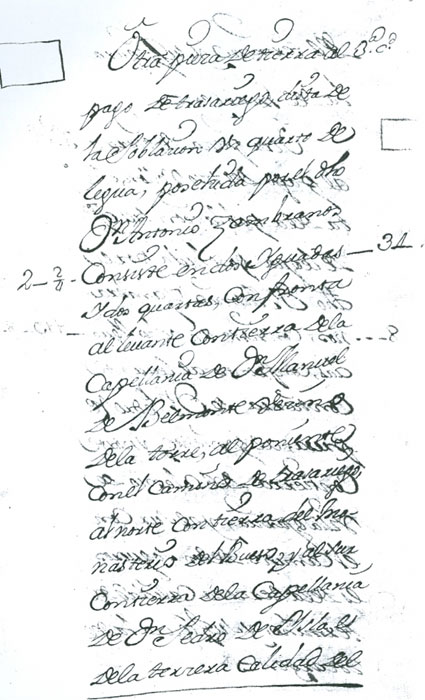 Otra pieza de tierra al
pago de trasariego, dista de
la Poblacion un quarto de
legua, posehida por el dho
Dn Antonio Zambrano
2 - 2/4 - Consiste en dos Yguadas — 31.
Y dos quartas, Confronta
al levante con tierra de la
Capellania de Dn Manuel
de Belmonte
de la torre, al poniente
con el Camino de trasariego
al norte con tierra del Mo-
nasterio del Bueso, y al Sur
Con tierra de la Capellania
de Dn Pedro de
de la terzera Calidad del